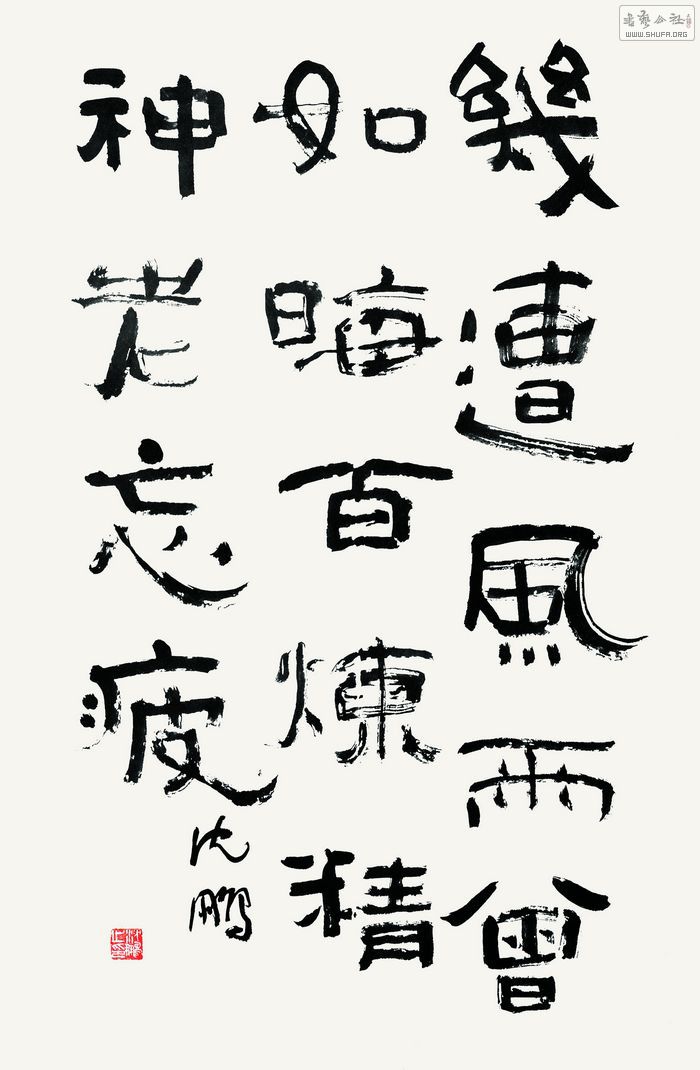 幾遭風雨曾
如晦百煉精
神老忘疲
沈鵬
WWW.SHUFA.ORG